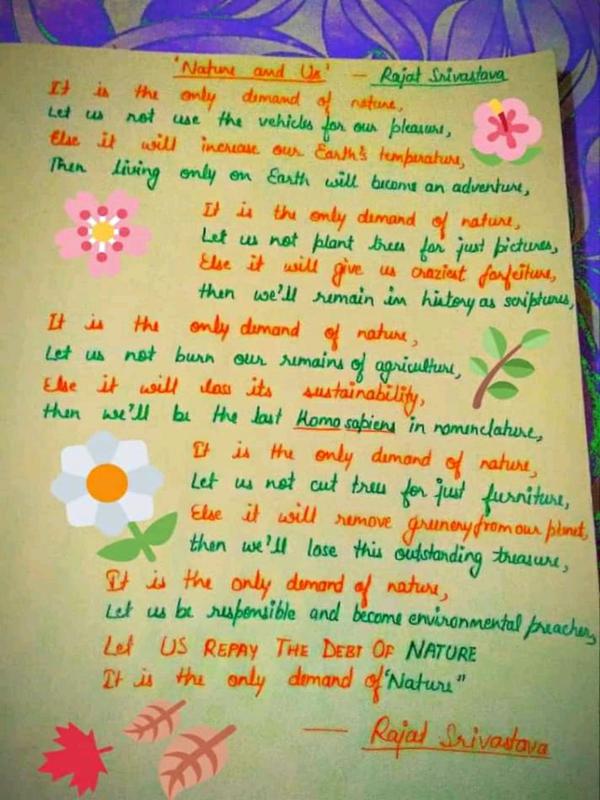 'Nature and Us' — Rajat Srivastava
It is the only demand of nature,
Let us not use the vehicles for our pleasure,
Else it will increase our Earth's temperature,
Then living only on Earth will become an adventure,
It is the only demand of nature,
Let us not plant trees for just pictures,
Else it will give us craziest forfeiture,
then we'll remain in history as scriptures,
It is the only demand of nature,
Let us not burn our remains of agriculture,
Else it will loss its sustainability,
then we'll be the last Homo sapiens in nomenclature,
It is the only demand of nature,
Let us not cut trees for just furniture,
Else it will remove greenery from our planet,
then we'll lose this outstanding treasure,
It is the only demand of nature,
Let us be responsible and become environmental preacher,
Let US REPAY THE DEBT OF NATURE
It is the only demand of "Nature"
— Rajat Srivastava